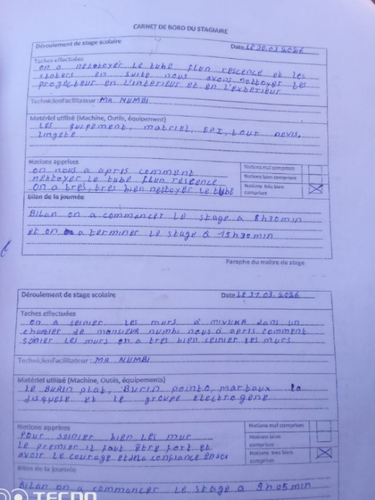 CARNET DE BORD DU STAGIAIRE
Déroulement de stage scolaire Date Le 30.03.2026
Taches effectuées
on a nettoyer le tube fluo rescence et les
en suite nous avons nettoyer les
projecteur en l'intérieur et en l'extérieur
Technicien/Facilitateur : MR NUMBI
Matériel utilisé (Machine, Outils, équipement)
Les matriel, EPI, tour nevis,
lingette
Notions apprises
Notions mal comprises
on nous a apris comment
nettoyer le tube fluo rescence
Notions bien comprises
on a très, très bien nettoyer le tube
Notions très bien comprises
Bilan de la journée
Bilan on a commancer le stage à 8h30min
et on a terminer le stage à 15h30min
Paraphe du maitre de stage
Déroulement de stage scolaire Date Le 31.03.2026
Taches effectuées
on a seinier les murs à dans un
chantier de monsieur numbi nous a apris comment
les murs on a très bien seinier les murs
Technicien/Facilitateur : MR NUMBI
Matériel utilisé (Machine, Outils, équipements)
Le burin plat, Burin pointo, martaux la
et le groupe électrogène
Notions apprises
Notions mal comprises
Pour seinier bien les mur
Notions bien comprises
Le premier il faut être fort et
avoir le courage et la confiance en soi
Notions très bien comprises
Bilan de la journée
Bilan on a commancer le stage à 9h05min
TECNO